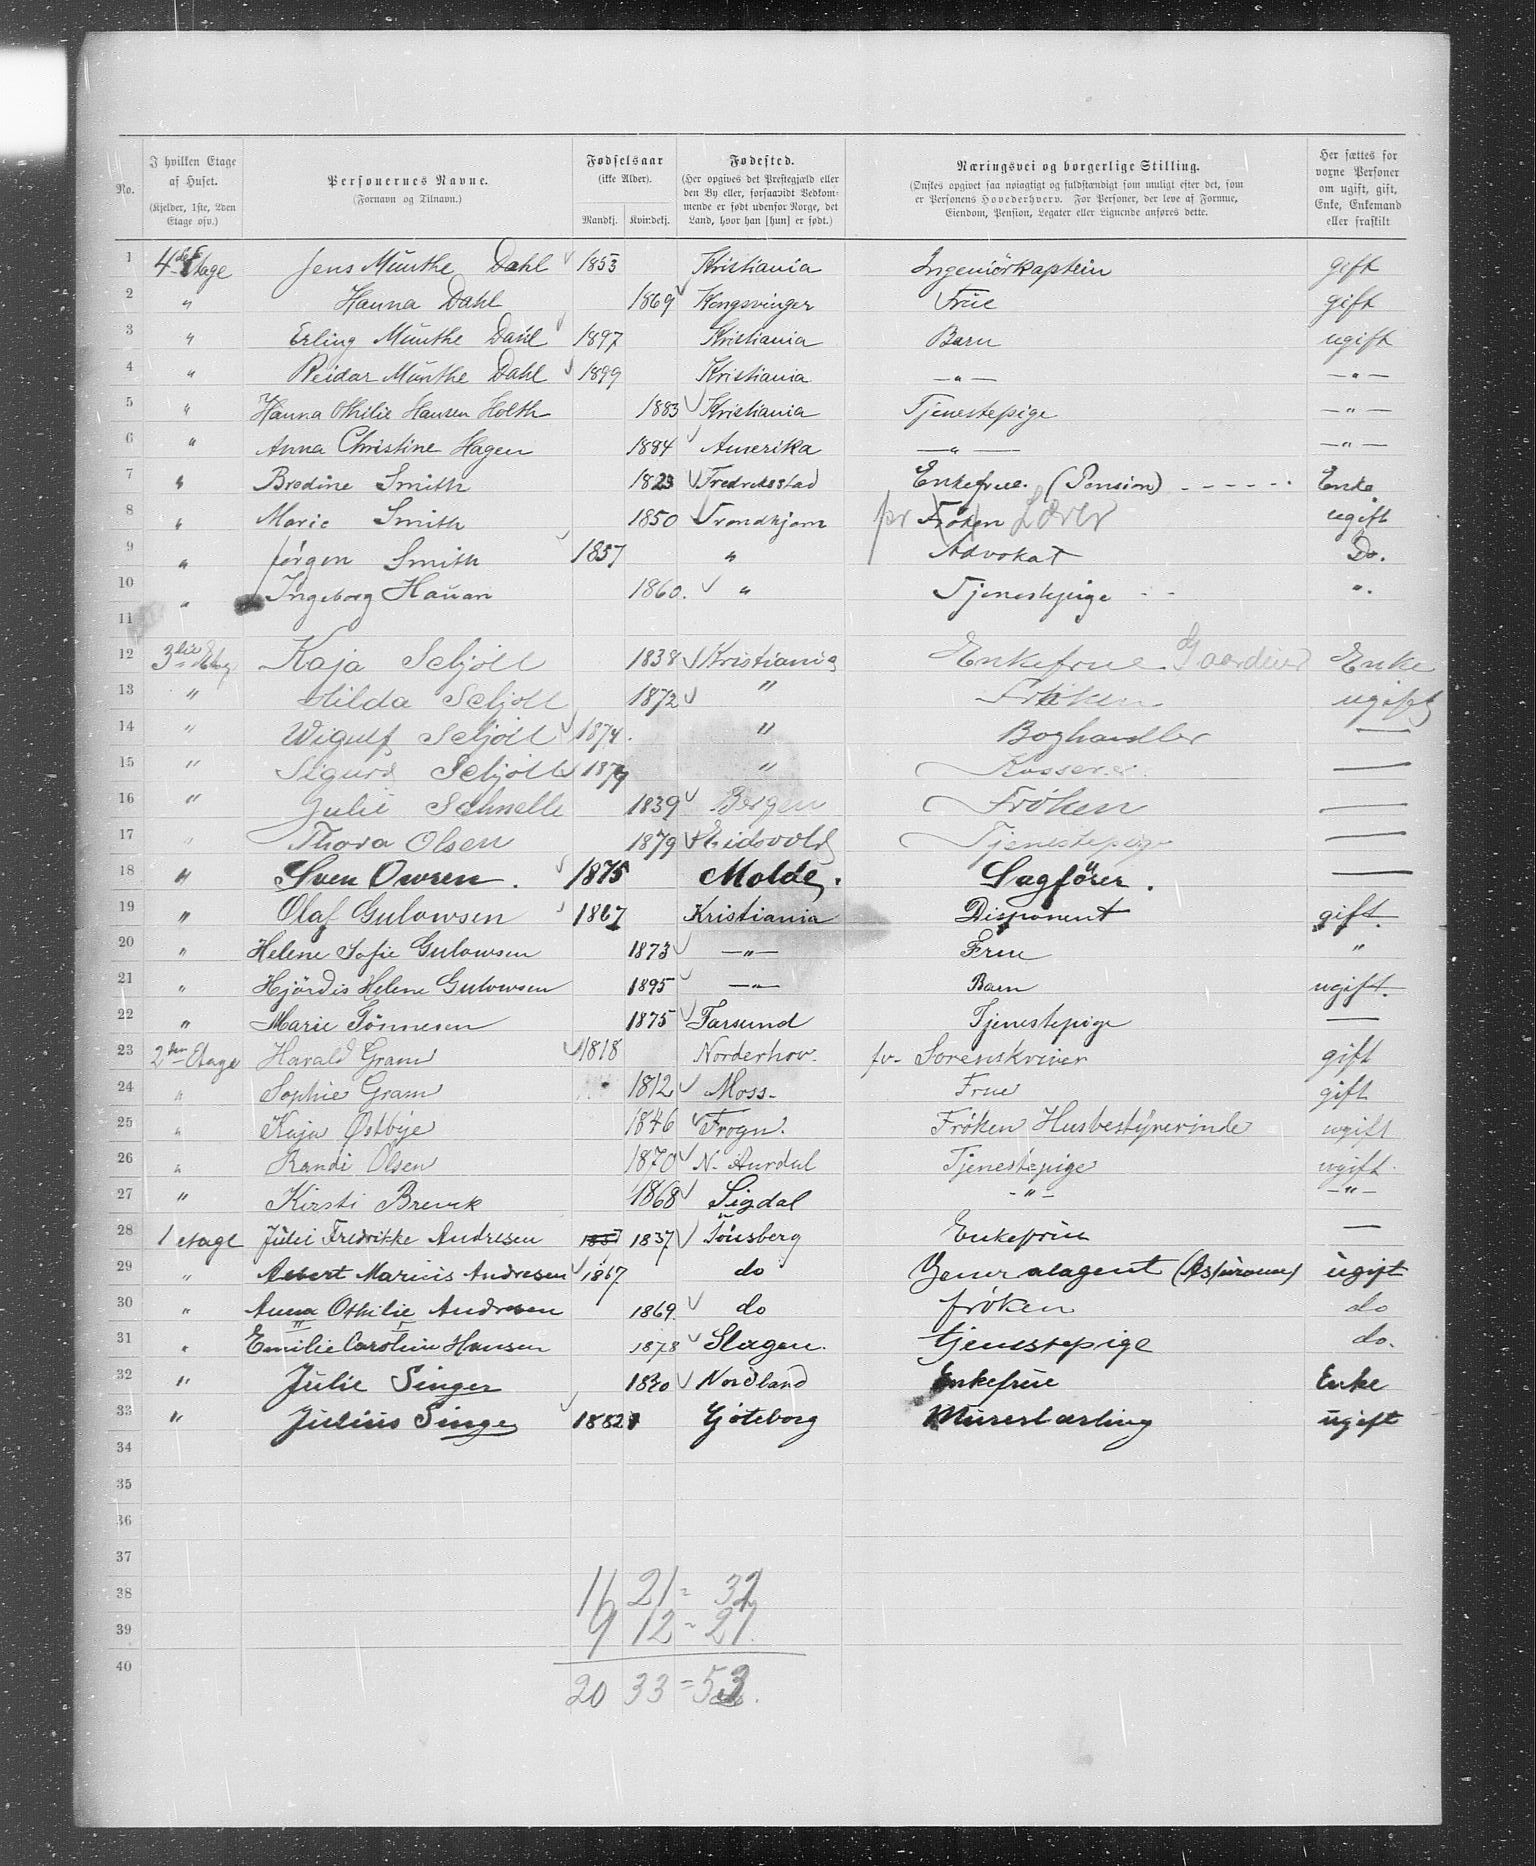 No. I hvilken Etage af Huset. (Kjelder, 1ste, 2den Etage osv.) Personernes Navne. (Fornavn og Tilnavn.) Fødselsaar (ikke Alder). Mandkj. Kvindekj. Fødested. (Her opgives det Prestegjæld eller den By eller, forsaavidt Vedkommende er født udenfor Norge, det Land, hvor han [hun] er født.) Næringsvei og borgerlige Stilling. (Ønskes opgivet saa nøiagtigt og fuldstændigt som muligt efter det, som er Personens Hovederhverv. For Personer, der leve af Formue, Eiendom, Pension, Legater eller Lignende anføres dette. Her sættes for voxne Personer om ugift, gift, Enke, Enkemand eller fraskilt
1 4de Etage Jens Münthe Dahl 1853 Kristiania Ingeniörkaptein gift
2 " Hanna Dahl 1869 Kongsvinger Früe gift
3 " Erling Münthe Dahl 1897 Kristiania Barn ugift
4 " Reidar Münthe Dahl 1899 Kristiania —"— —"—
5 " Hanna Othilie Hansen Holth 1883 Kristiania Tjenestepige —"—
6 " Anna Christine Hagen 1884 Amerika —"— —"—
7 " Bredine Smith 1823 Fredrikstad Enkefrue. (Pension) - - - - - - Enke
8 " Marie Smith 1850 Trondhjem pr Frøken Lærer ugift
9 " Jørgen Smith 1857 " Advokat Do.
10 " Ingeborg Hauan 1860. " Tjenestepige - - ".
11
12 3die Etag Kaja Schjøll 1838 Kristiania Enkefrue. Gaardeier Enke
13 " Hilda Schjøll 1872 " Frøken ugift
14 " Wigulf Schjøll 1874. " Boghandler —
15 " Sigurd Schjøll 1879 " Kasserer. —
16 " Julie Schnelle 1839 Bergen Frøken —
17 " Thora Olsen 1879 Eidsvold Tjenestepige —
18 " Sven Owren. 1875 Molde. Sagfører. —
19 " Olaf Gulowsen 1867 Kristiania Disponent gift.
20 " Helene Sofie Gulowsen 1873 —"— Frue "
21 " Hjördis Helene Gulowsen 1895 —"— Barn ugift.
22 " Marie Tönnesen 1875 Farsund Tjenestepige —
23 2den Etage Harald Gram 1818 Norderhov. fv- Sorenskriver gift
24 " Sophie Gram 1812 Moss- Frue gift
25 " Kaja Østbye 1846 Frogn. Frøken Husbestyrerinde ugift
26 " Randi Olsen 1870 N. Aurdal Tjenestepige ugift
27 " Kirsti Brevik 1868 Sigdal - " - —"—
28 1 etage Julie Fredrikke Andresen 1837 1837 Tönsberg Enkefrüe —
29 " Albert Marius Andresen 1867 do Generalagent (Assurance) ugift
30 " Anna Othilie Andresen 1869. do frøken do
31 " Emilie Caroline Hansen 1878 Slagen. tjenestepige do.
32 " Julie Singer 1820 Nordland Enkefrue Enke
33 " Julius Singer 1882 Gjöteborg Murerlærling ugift
34
35
36
37
38 11 21 = 32
39 9 12 = 21.
40 20 33 = 53.